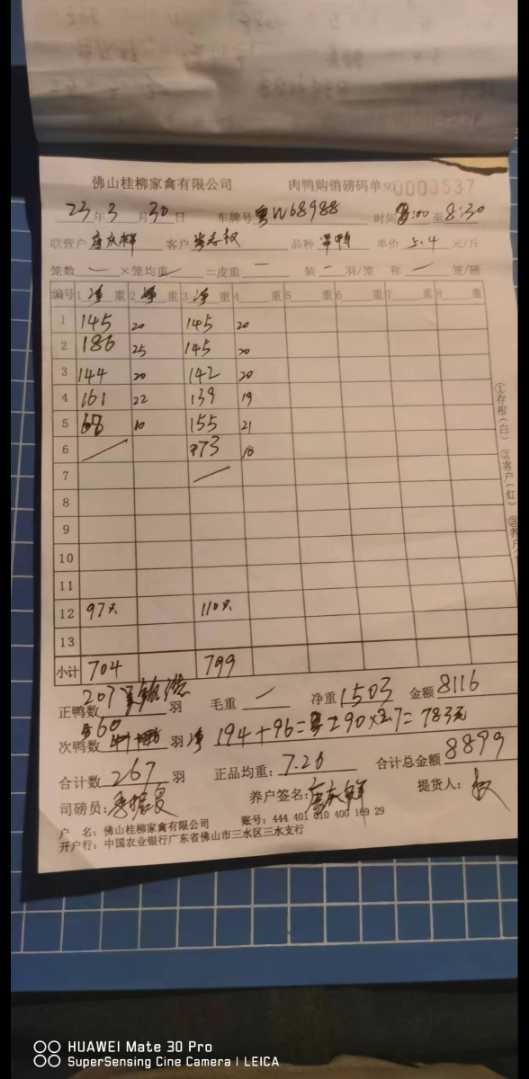 佛山桂柳家禽有限公司 肉鸭购销磅码单 NO 0003537
23年3月30日 车牌号粤W68988 时间8:00至8:30
联营户 客户 品种 单价5.4元/斤
笼数 ×笼均重 =皮重 装 羽/笼 称 笼/磅
编号 1净重 2 重 3净重 4 重 5 重 6 重 7 重 8 重
1 145 20 145 20
2 186 25 145 20
3 144 20 142 20
4 161 22 139 19
5 68 10 155 21
6 73 10
7
8
9
10
11
12 97只 110只
13
小计 704 799
正鸭数 207 羽 毛重 净重1503 金额8116
次鸭数 60 羽 净 194+96=290×2.7=783元
合计数267羽 正品均重:7.26 合计总金额8899
司磅员: 养户签名: 提货人:
户 名:佛山桂柳家禽有限公司 账号:444 401 010 400 169 29
开户行:中国农业银行广东省佛山市三水区三水支行
①存根(白)②客户(红)
HUAWEI Mate 30 Pro
SuperSensing Cine Camera | LEICA